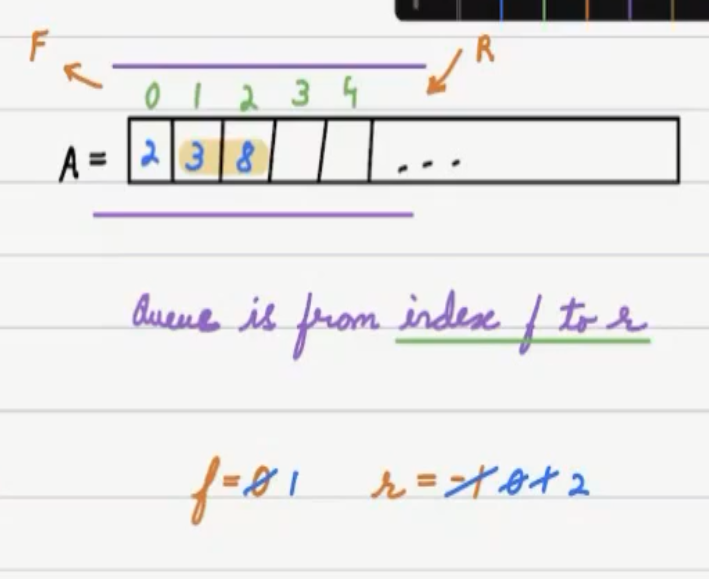 F R
0 1 2 3 4
A = 2 3 8 ...
Queue is from index f to r
f = 0 1 r = -1 0 1 2